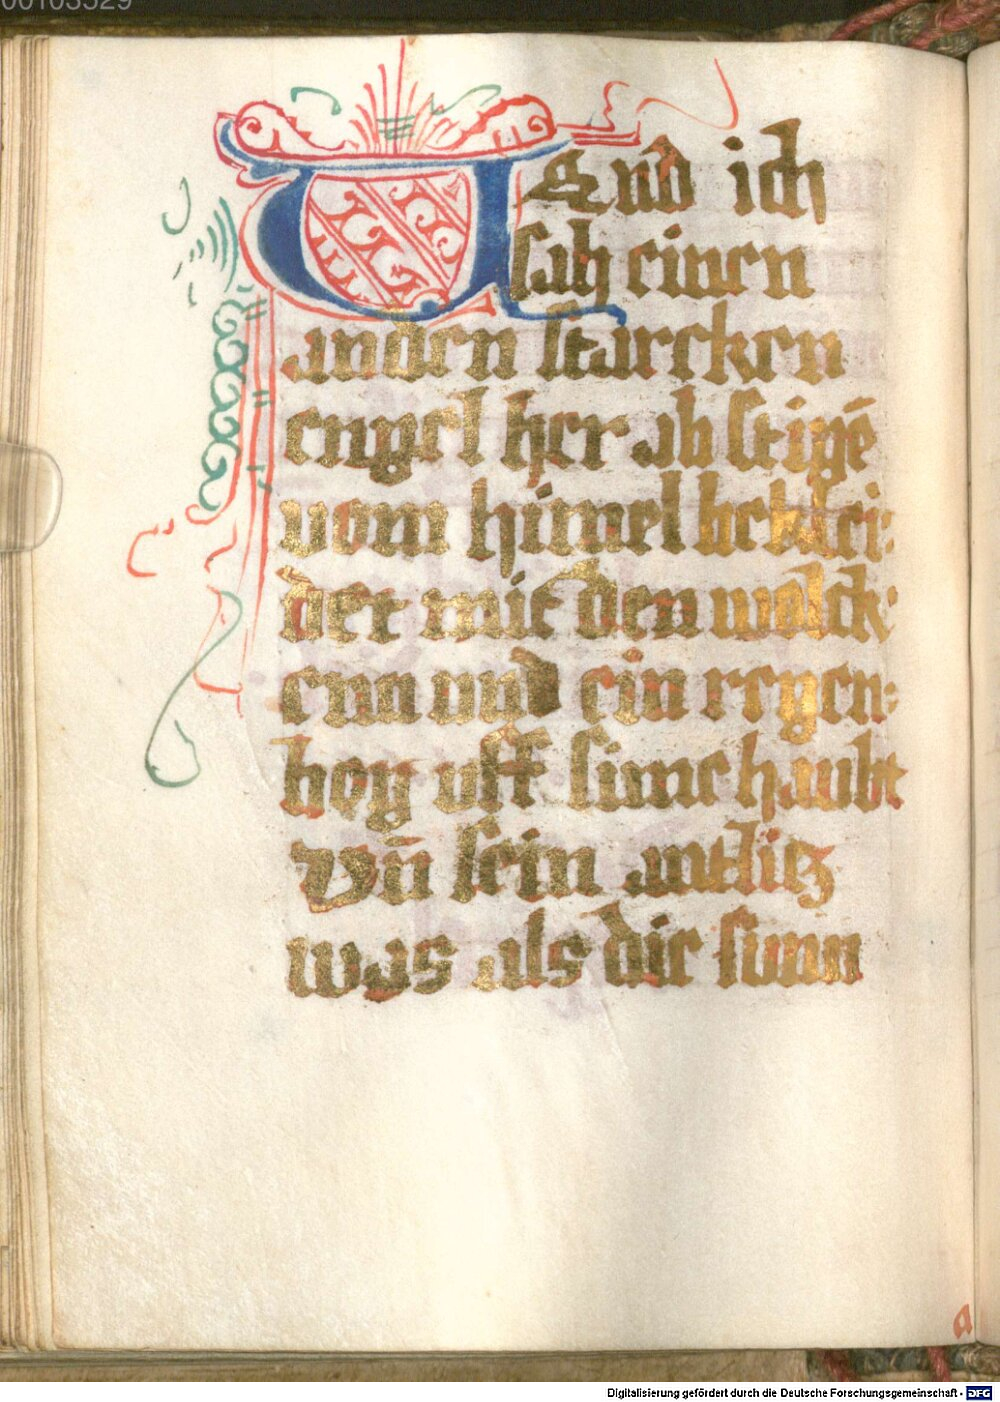 00103529
Und ich
sah einen
anden starcken
engel her ab stigē
vom himel beklei:
det mit den wolck:
enn und ein regen:
bog uff sime haubt
vn̄ sein antlitz
was als die sunn
a
Digitalisierung gefördert durch die Deutsche Forschungsgemeinschaft - DFG